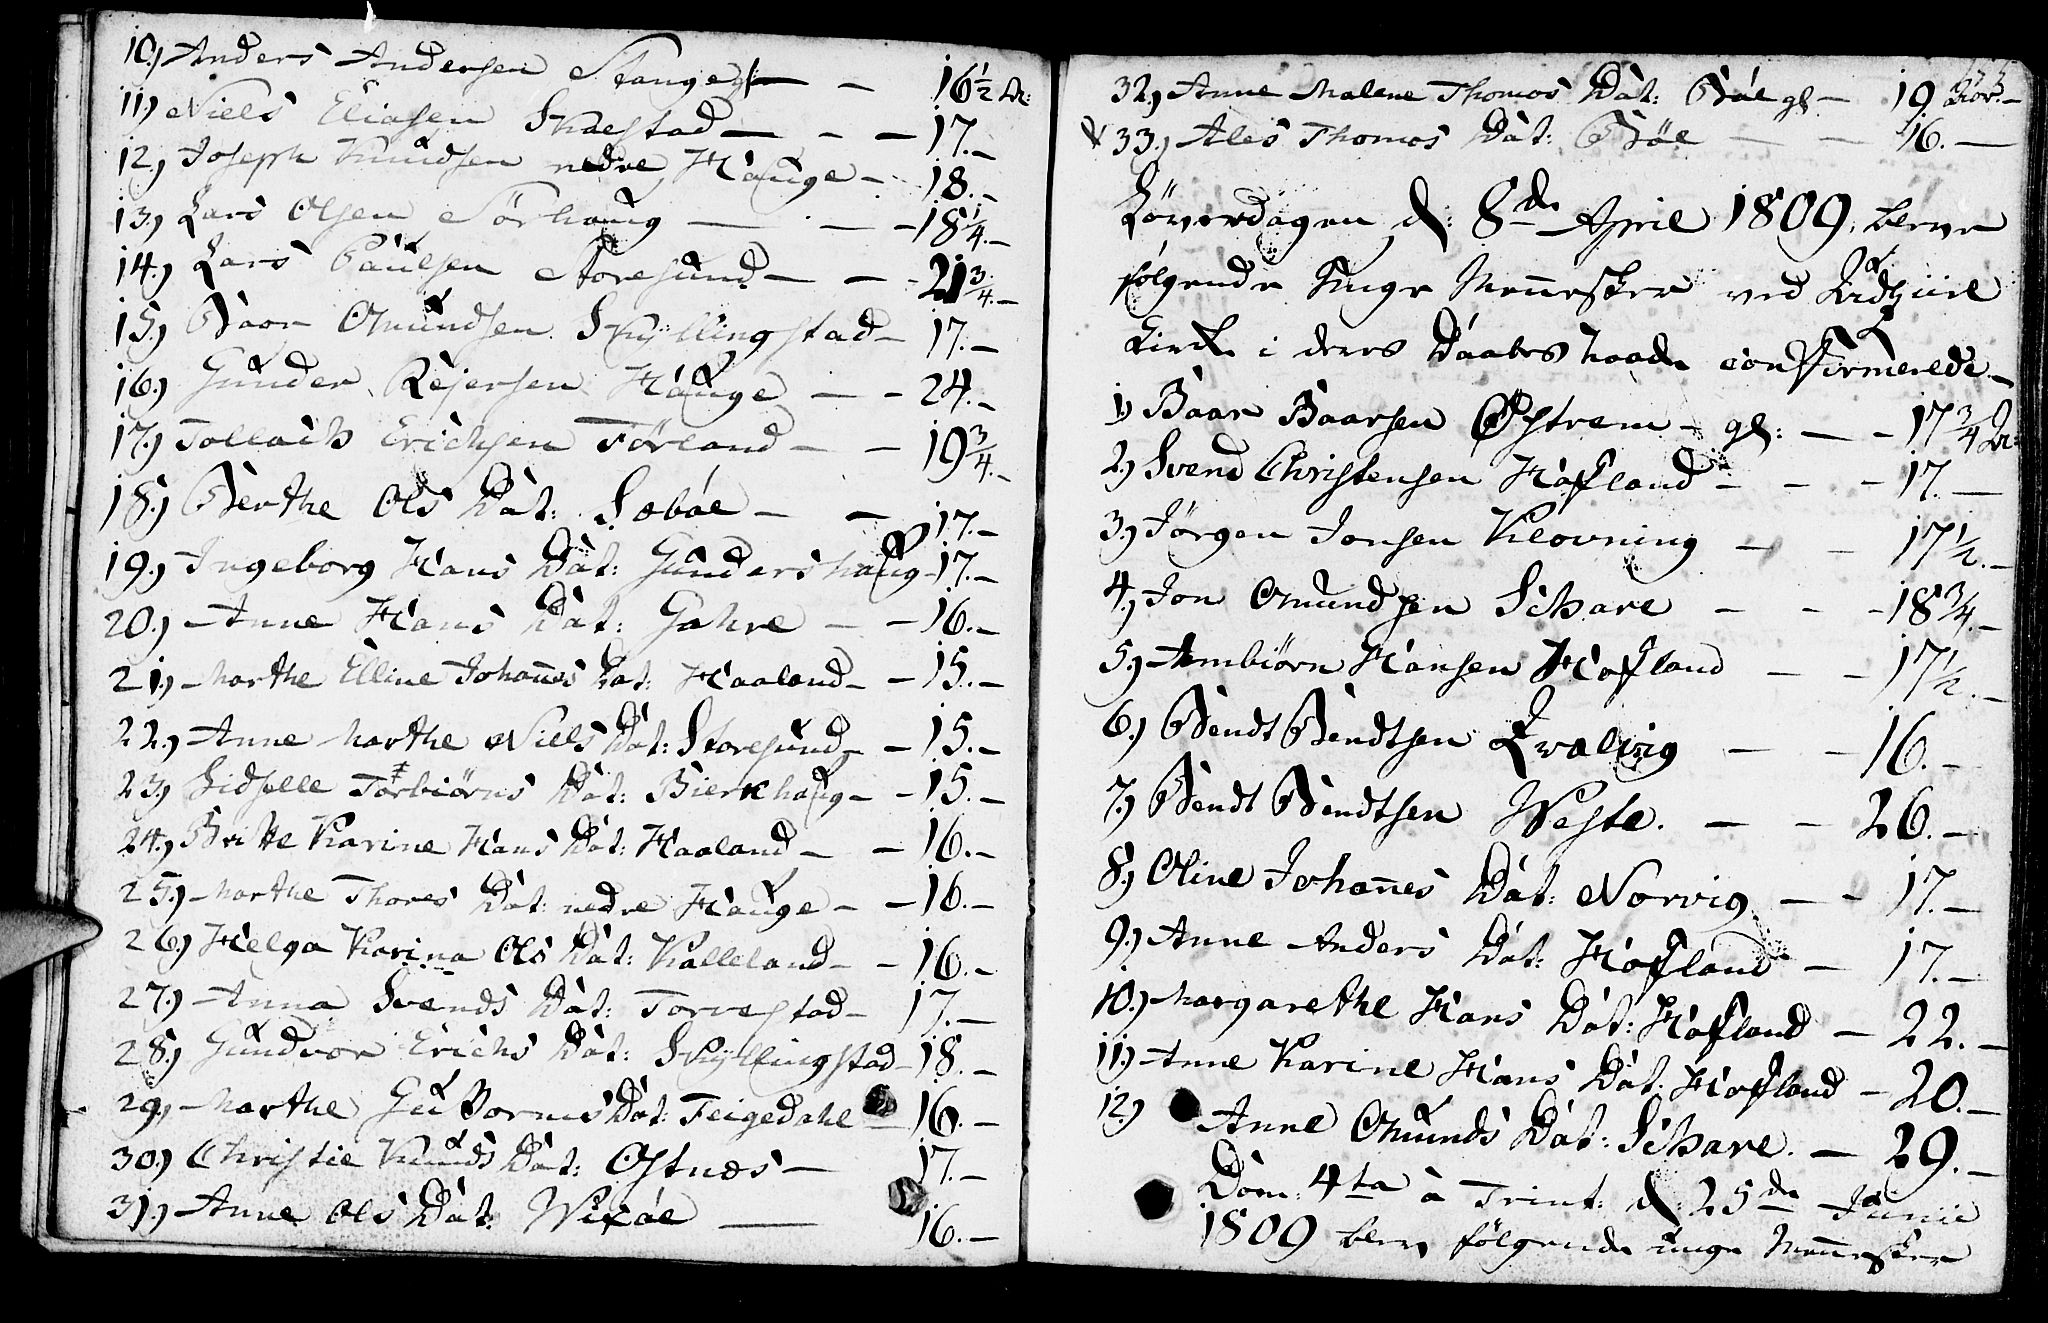 10.) Anders Andersen Stange — — 16½ Ar:
11.) Niels Eliasen Skaestad — — — 17. —
12.) Joseph Knudsen nedre Hauge — 18. —
13.) Lars Olsen Nörhaug — — — 18¼. —
14.) Lars Paulsen Storesund — — — 21¾. —
15.) Baar Omundsen Skyllingstad — 17. —
16.) Gunder Rejersen Hauge — — 24. —
17.) Tollach Erichsen Törland — — 19¾. —
18.) Berthe Ols Dat: Sæbøe — — 17. —
19.) Ingeborg Hans Dat: Gundershaug — 17. —
20.) Anne Hans Dat: Gahre — — 16. —
21.) Marthe Elline Johan̄es Dat: Haaland — — 15. —
22.) Anne Marthe Niels Dat: Storesund — — 15. —
23.) Sidselle Torbiörns Dat: Bierkhaug — — 15. —
24.) Britte Karine Hans Dat: Haaland — — 16. —
25.) Marthe Thores Dat: nedre Hauge — — 16. —
26.) Helga Karina Ols Dat: Kalleland — — 16. —
27.) Anna Svends Dat: Torvestad — 17. —
28.) Gundvor Erichs Dat: Skyllingstad — 18. —
29.) Marthe Guttorms Dat: Feigedahl — 16. —
30.) Christie Knuds Dat: Ostnæs — 17. —
31.) Anne Ols Dat: Wixøe — 16. —
32.) Anne Malene Thomos Dat: Bøe gl — 19 Aar. —
33.) Ales Thomos Dat: Bøe — — 16. —
Löverdagen d: 8de April 1809, bleve
følgende Unge Men̄esker ved
Kirke i deres Daabes Naade confirmerede. —
1.) Baar Baarsen Østrem — gl: — — 17¾ Ar:
2.) Svend Christensen Hafland — — — 17. —
3.) Jørgen Jonsen Klovning — — 17½. —
4.) Jon Omundsen Schare — — — 18¾. —
5.) Arnbiörn Hansen Hafland — — 17½. —
6.) Bendt Bendtsen Qvalvig — — 16. —
7.) Bendt Bendtsen Weste. — — 26. —
8.) Oline Johan̄es Dat: Norvig — — 17. —
9.) Anne Anders Dat: Hafland — 17. —
10.) Margarethe Hans Dat: Hafland — 22. —
11.) Anne Karine Hans Dat: Hafland — 20. —
12.) Anne Omunds Dat: Schare. — 29. —
Dom: 4ta à Trint: d: 25de Junii
1809 blev følgende unge Men̄esker